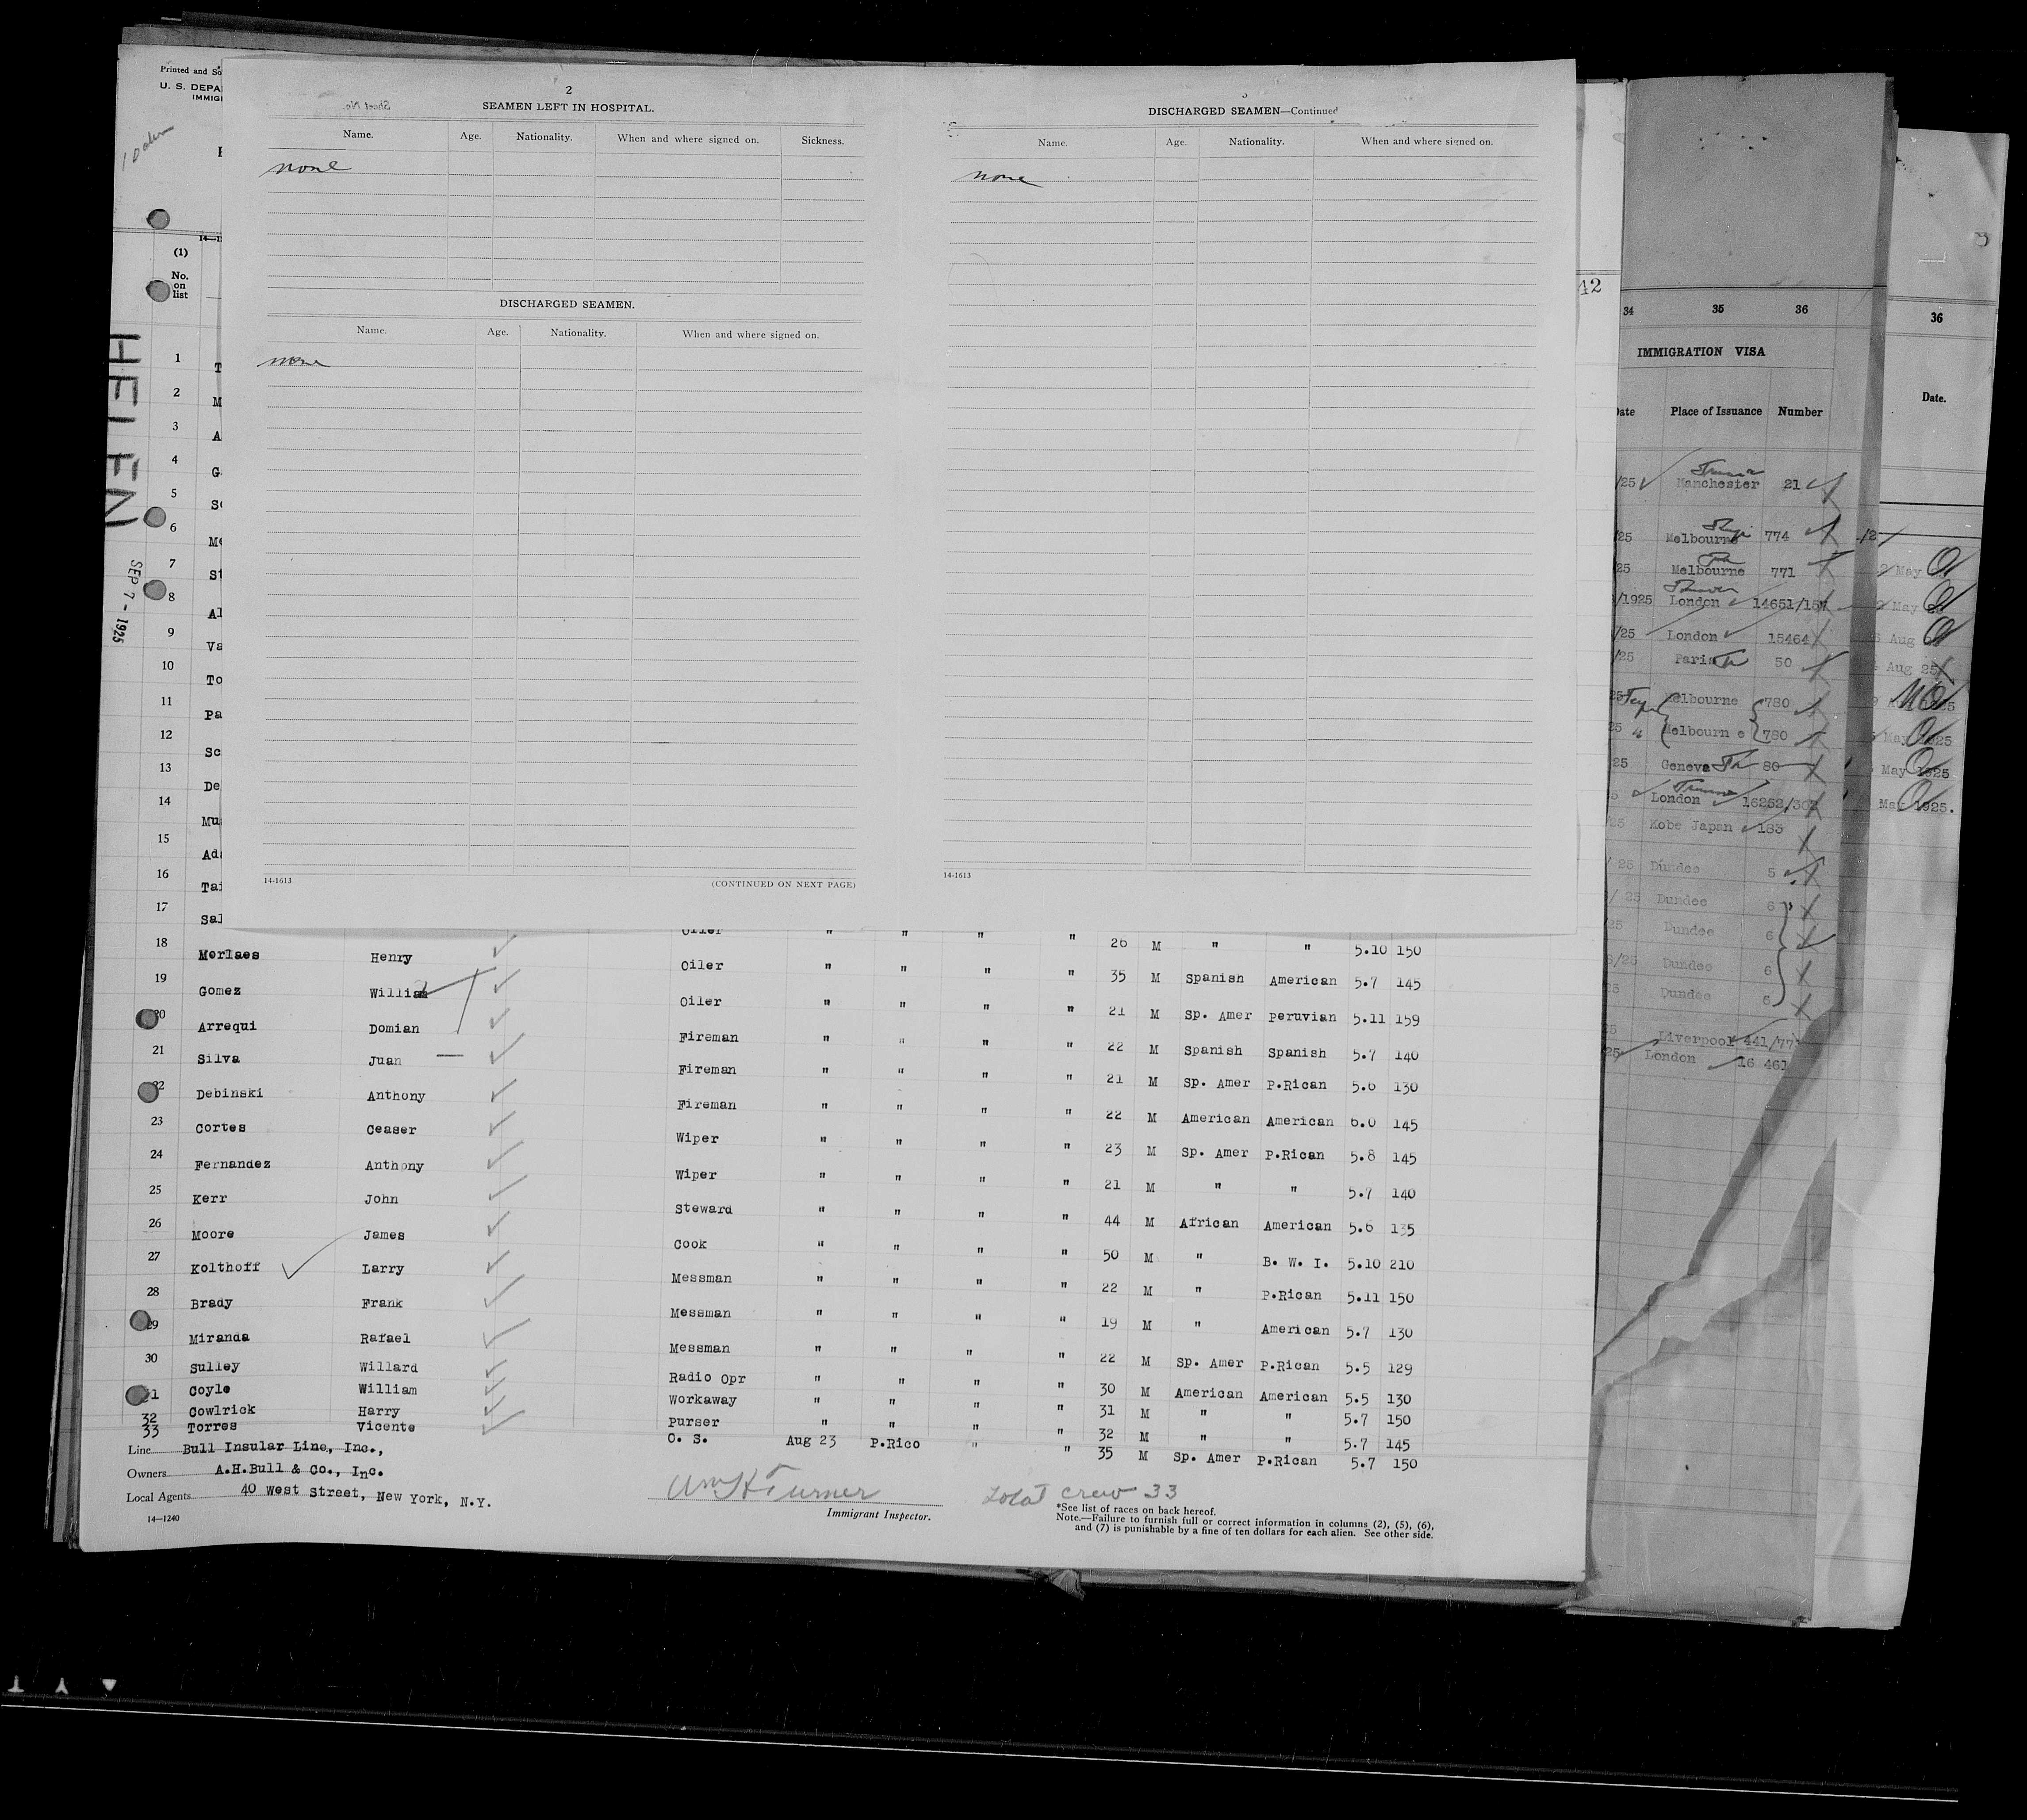 Printed and So
U. S. DEPA
IMMIG
2
SEAMEN LEFT IN HOSPITAL.
Sheet No.
Name. Age. Nationality. When and where signed on. Sickness.
none
DISCHARGED SEAMEN.
Name. Age. Nationality. When and where signed on.
none
14-1613 (CONTINUED ON NEXT PAGE)
3
DISCHARGED SEAMEN—Continued
Name. Age. Nationality. When and where signed on.
none
14-1613
(1)
No.
on
list
HELEN
SEP 7 - 1925
1 T
2 M
3 A
4 G
5 Sc
6 Me
7 St
8 Al
9 Va
10 To
11 Pa
12 Sc
13 De
14 Mu
15 Ad
16 Tai
17 Sal Oiler " " " " 26 M " " 5.10 150
18 Morlaes Henry Oiler " " " " 35 M Spanish American 5.7 145
19 Gomez William Oiler " " " " 21 M Sp. Amer Peruvian 5.11 159
20 Arrequi Domian Fireman " " " " 22 M Spanish Spanish 5.7 140
21 Silva Juan Fireman " " " " 21 M Sp. Amer P.Rican 5.6 130
22 Debinski Anthony Fireman " " " " 22 M American American 6.0 145
23 Cortes Ceaser Wiper " " " " 23 M Sp. Amer P.Rican 5.8 145
24 Fernandez Anthony Wiper " " " " 21 M " " 5.7 140
25 Kerr John Steward " " " " 44 M African American 5.6 135
26 Moore James Cook " " " " 50 M " B. W. I. 5.10 210
27 Kolthoff Larry Messman " " " " 22 M " P.Rican 5.11 150
28 Brady Frank Messman " " " " 19 M " American 5.7 130
29 Miranda Rafael Messman " " " " 22 M Sp. Amer P.Rican 5.5 129
30 Sulley Willard Radio Opr " " " " 30 M American American 5.5 130
31 Coyle William Workaway " " " " 31 M " " 5.7 150
32 Cowlrick Harry Purser " " " " 32 M " " 5.7 145
33 Torres Vicente O. S. Aug 23 P.Rico " " 35 M Sp. Amer P.Rican 5.7 150
Line Bull Insular Line, Inc.,
Owners A.H.Bull & Co., Inc.
Local Agents 40 West Street, New York, N.Y.
14—1240
Wm H Turner
Immigrant Inspector.
Total crew 33
*See list of races on back hereof.
Note.—Failure to furnish full or correct information in columns (2), (5), (6),
and (7) is punishable by a fine of ten dollars for each alien. See other side.
42
34 35 36
IMMIGRATION VISA
Date Place of Issuance Number
/25 Manchester 21
25 Melbourne 774
25 Melbourne 771
/1925 London 14651/157
/25 London 15464
/25 Paris 50
25 Melbourne 780
25 " Melbourn e 780
25 Geneva 80
5 London 16252/302
25 Kobe Japan 183
/ 25 Dundee 5
/ 25 Dundee 6
25 Dundee 6
/25 Dundee 6
25 Dundee 6
25 Liverpool 441/77
25 London 16 461
36
Date.
May
May
Aug
Aug 25
1925
May 1925
May 1925
May 1925.